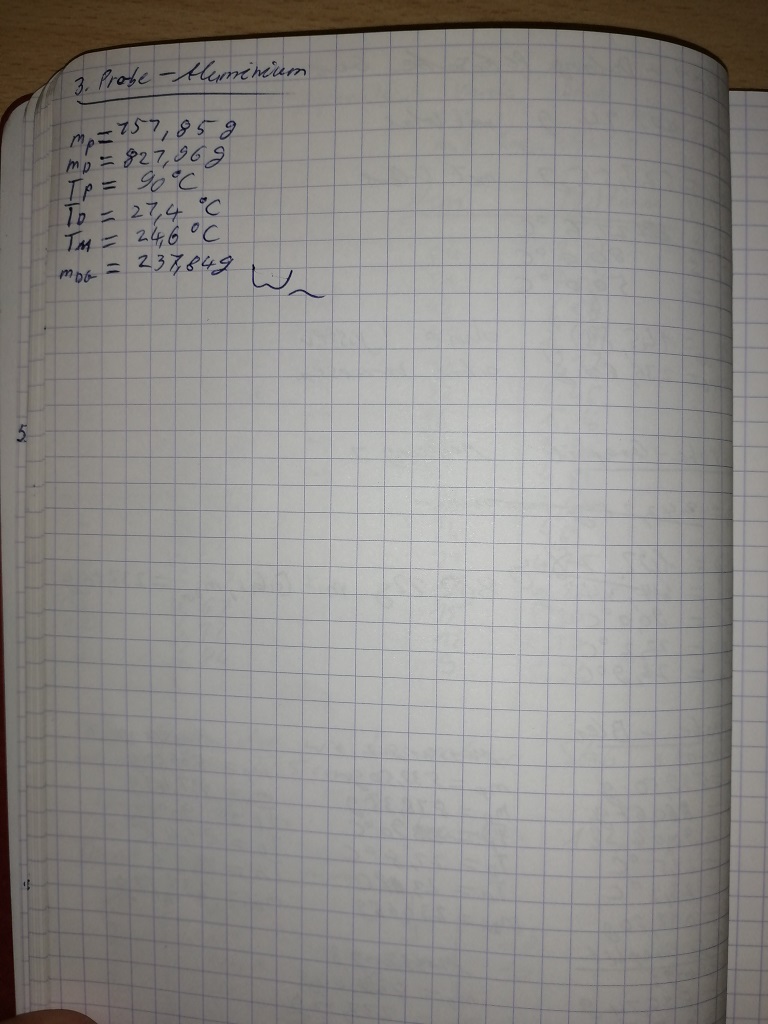 3. Probe – Aluminium
mP = 151,85 g
mD = 821,96 g
TP = 90 °C
TD = 21,4 °C
TM = 24,6 °C
mDG = 237,84 g
5